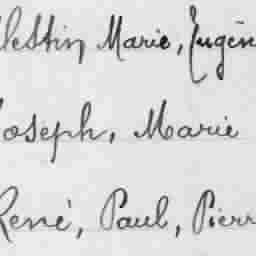 lestin Marie, Eugèn
Joseph, Marie
René, Paul, Pierr